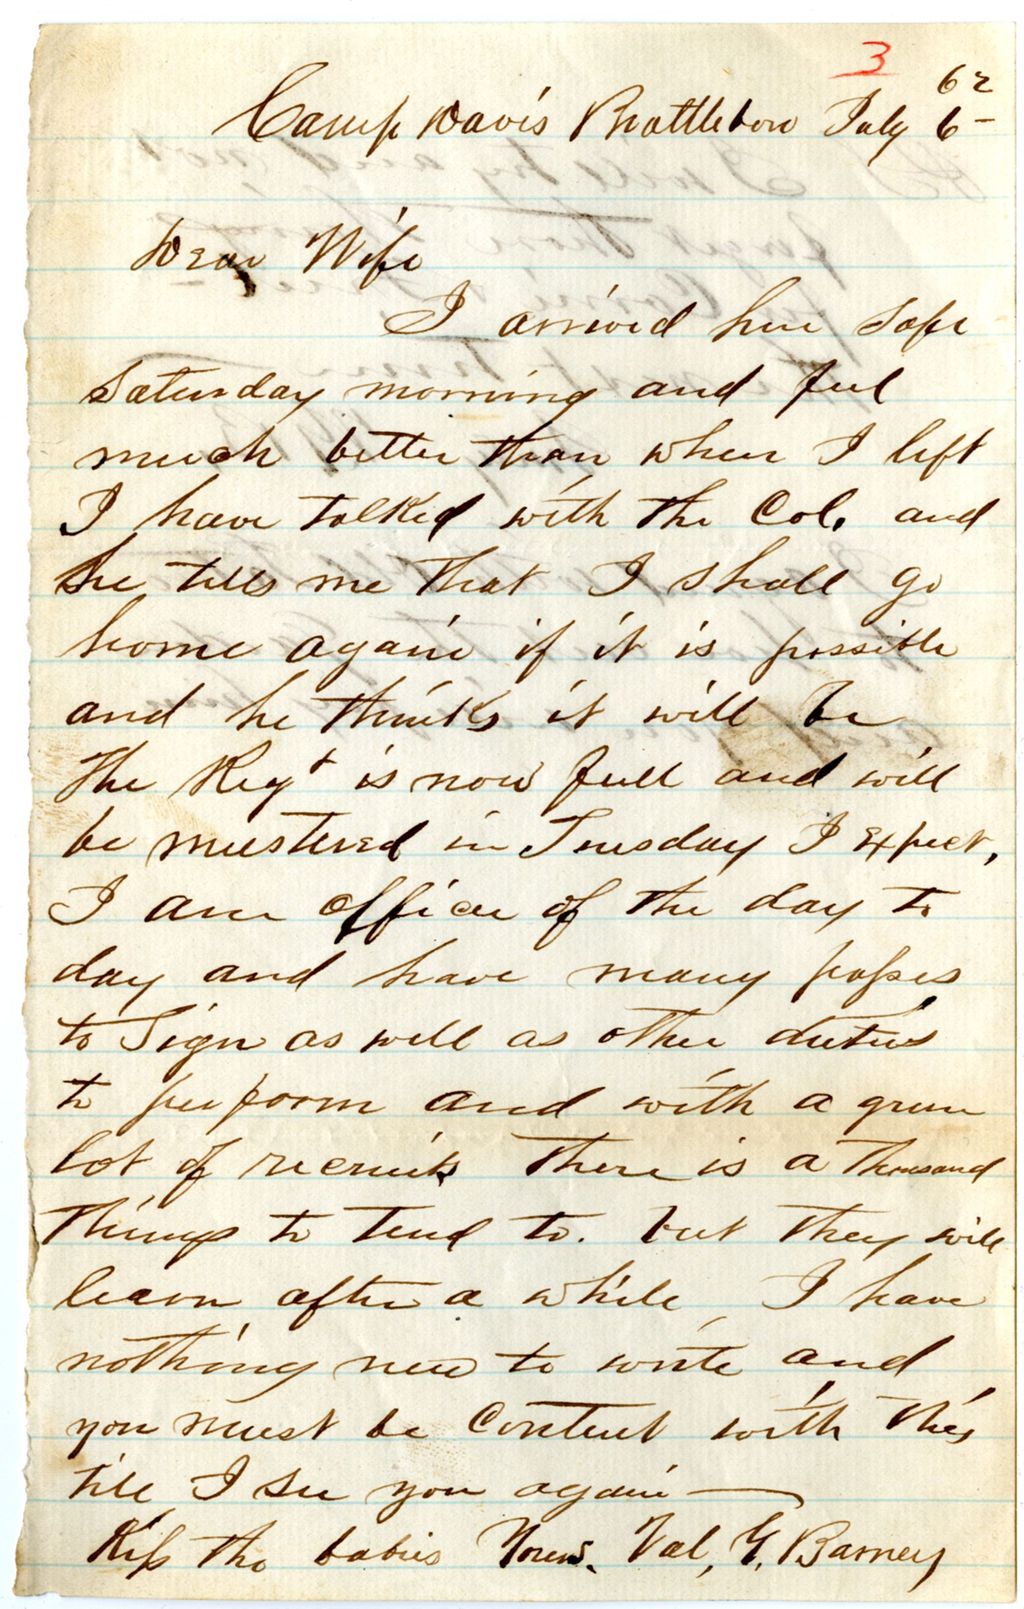 3
62
Camp Davis Brattleboro July 6-
Dear Wife
I arrived here safe
Saturday morning and feel
much better than when I left
I have talked with the Col. and
he tells me that I shall go
home again if it is possible
and he thinks it will be
The Regt is now full and will
be mustered in Tuesday I expect,
I am officer of the day to
day and have many passes
to sign as well as other duties
to perform and with a green
lot of recruits there is a thousand
things to tend to. but they will
learn after a while I have
nothing new to write and
you must be content with this
till I see you again —
Kiss the babies Yours. Val, G. Barney